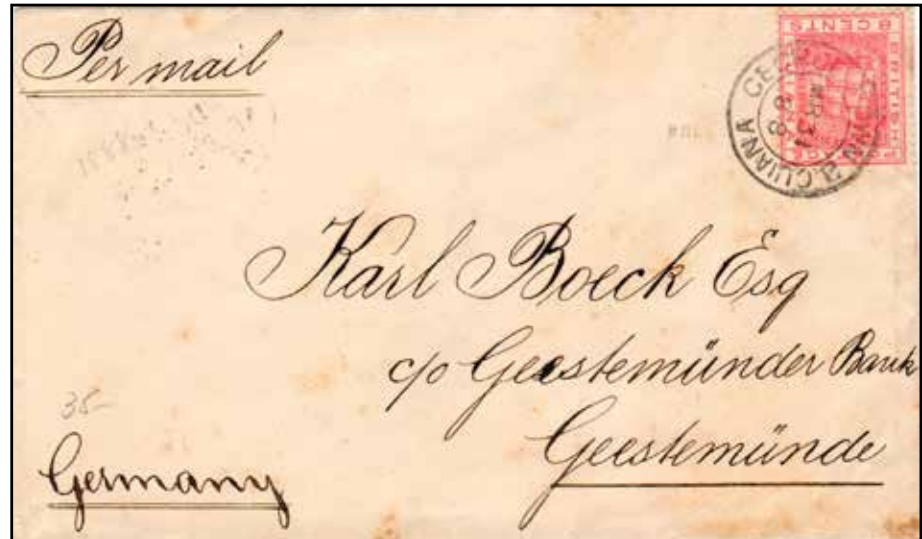 Per mail
8 CENTS
MR 31
88
GUIANA
Karl Boeck Esq
c/o Geestemünder Bank
Geestemünde
35-
Germany